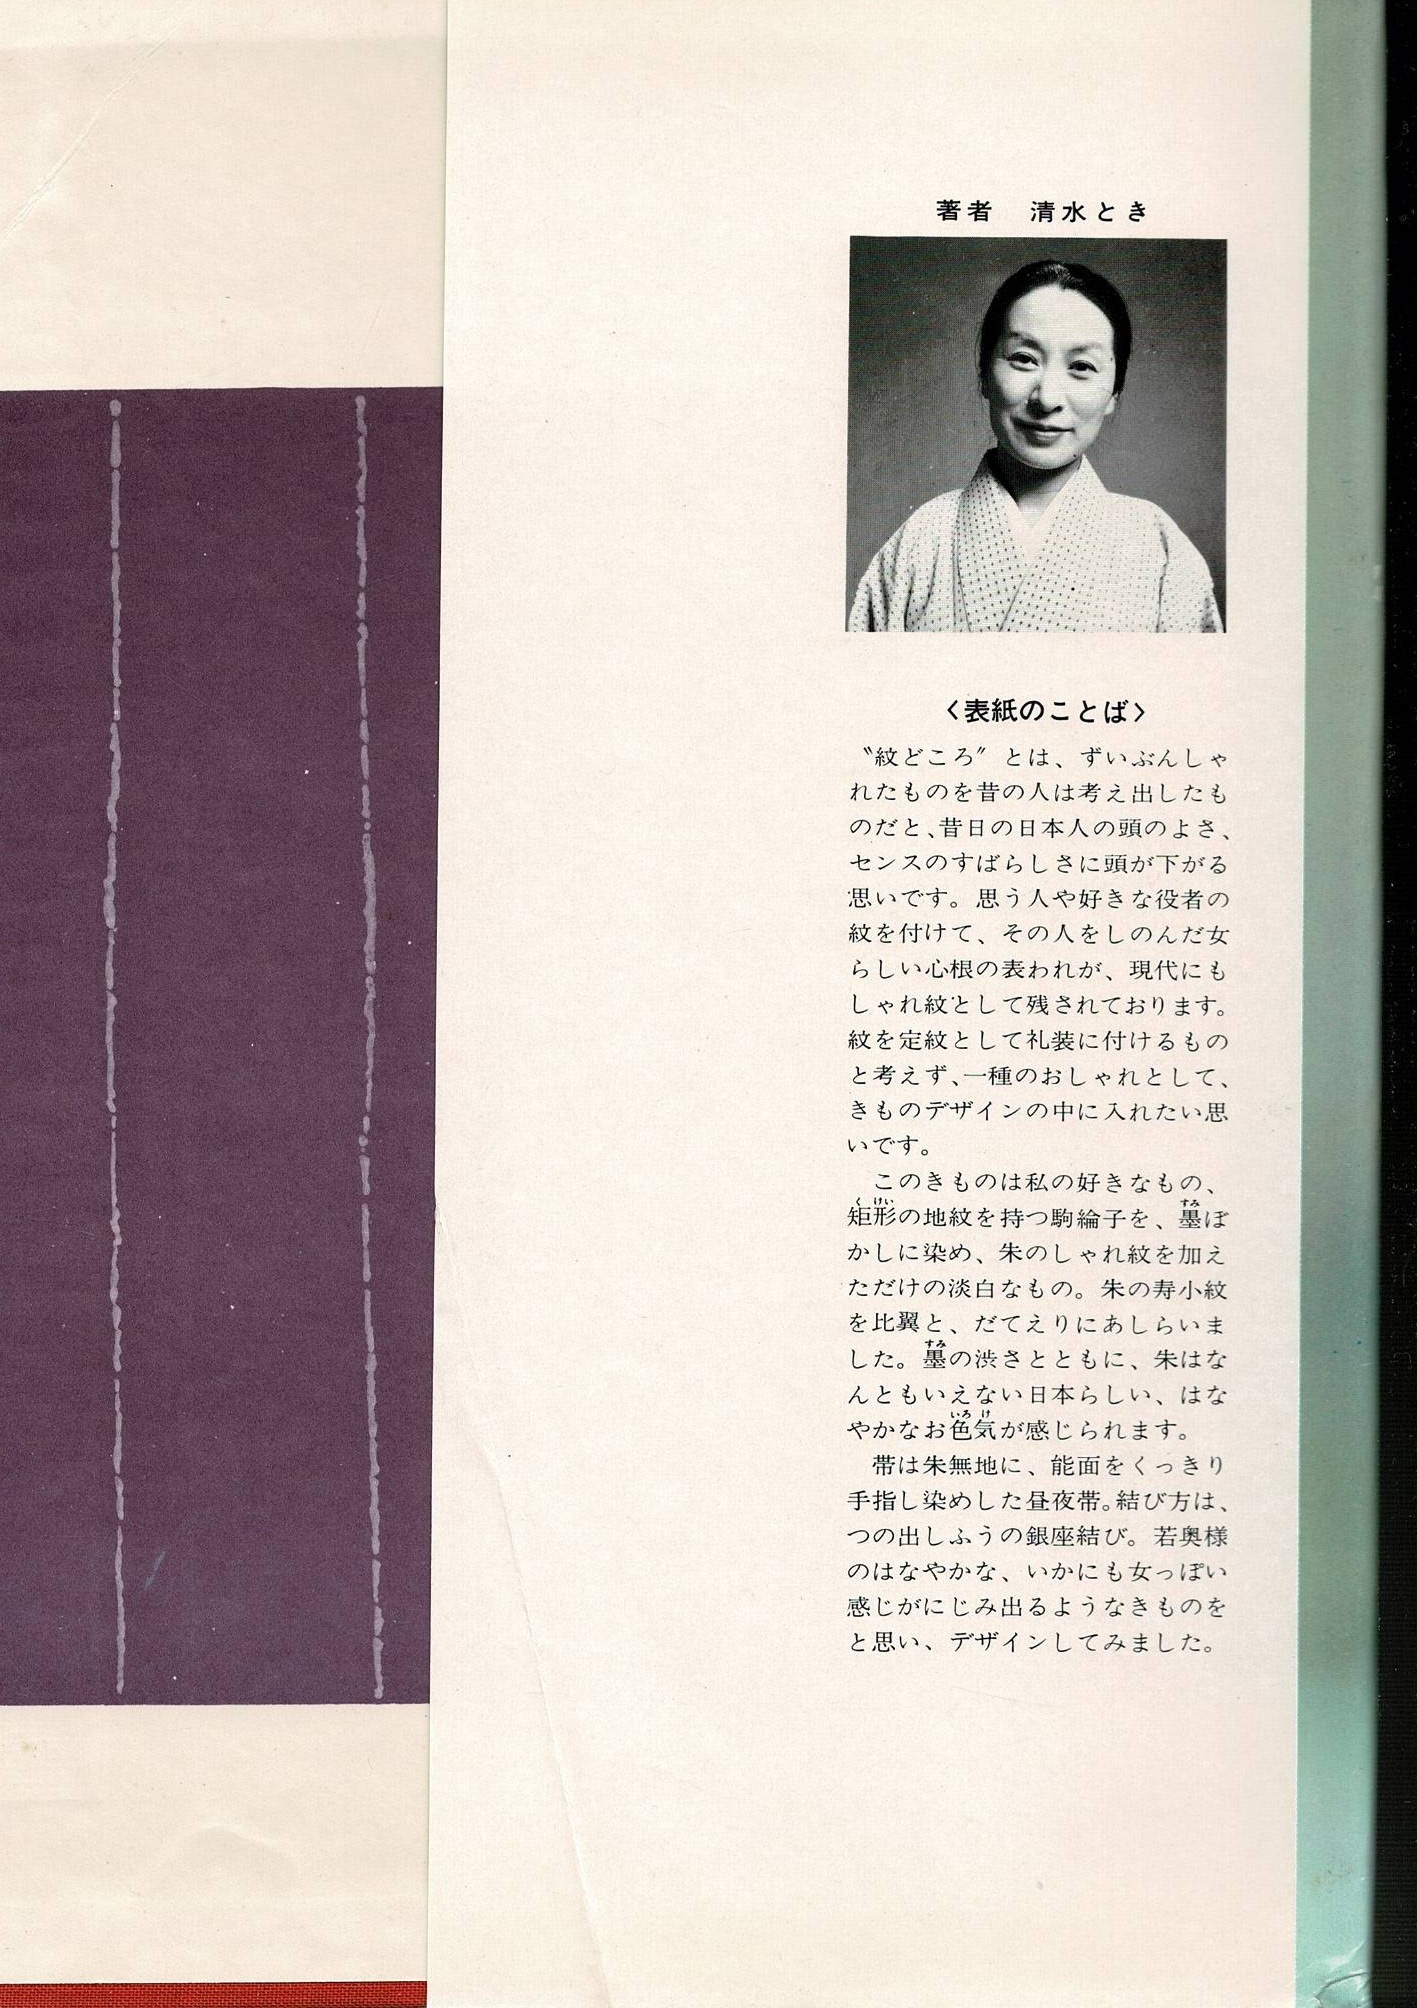 著者　清水とき
〈表紙のことば〉
〝紋どころ〞とは、ずいぶんしゃ
れたものを昔の人は考え出したも
のだと、昔日の日本人の頭のよさ、
センスのすばらしさに頭が下がる
思いです。思う人や好きな役者の
紋を付けて、その人をしのんだ女
らしい心根の表われが、現代にも
しゃれ紋として残されております。
紋を定紋として礼装に付けるもの
と考えず、一種のおしゃれとして、
きものデザインの中に入れたい思
いです。
　このきものは私の好きなもの、
矩形の地紋を持つ駒綸子を、墨ぼ
かしに染め、朱のしゃれ紋を加え
ただけの淡白なもの。朱の寿小紋
を比翼と、だてえりにあしらいま
した。墨の渋さとともに、朱はな
んともいえない日本らしい、はな
やかなお色気が感じられます。
　帯は朱無地に、能面をくっきり
手指し染めした昼夜帯。結び方は、
つの出しふうの銀座結び。若奥様
のはなやかな、いかにも女っぽい
感じがにじみ出るようなきものを
と思い、デザインしてみました。